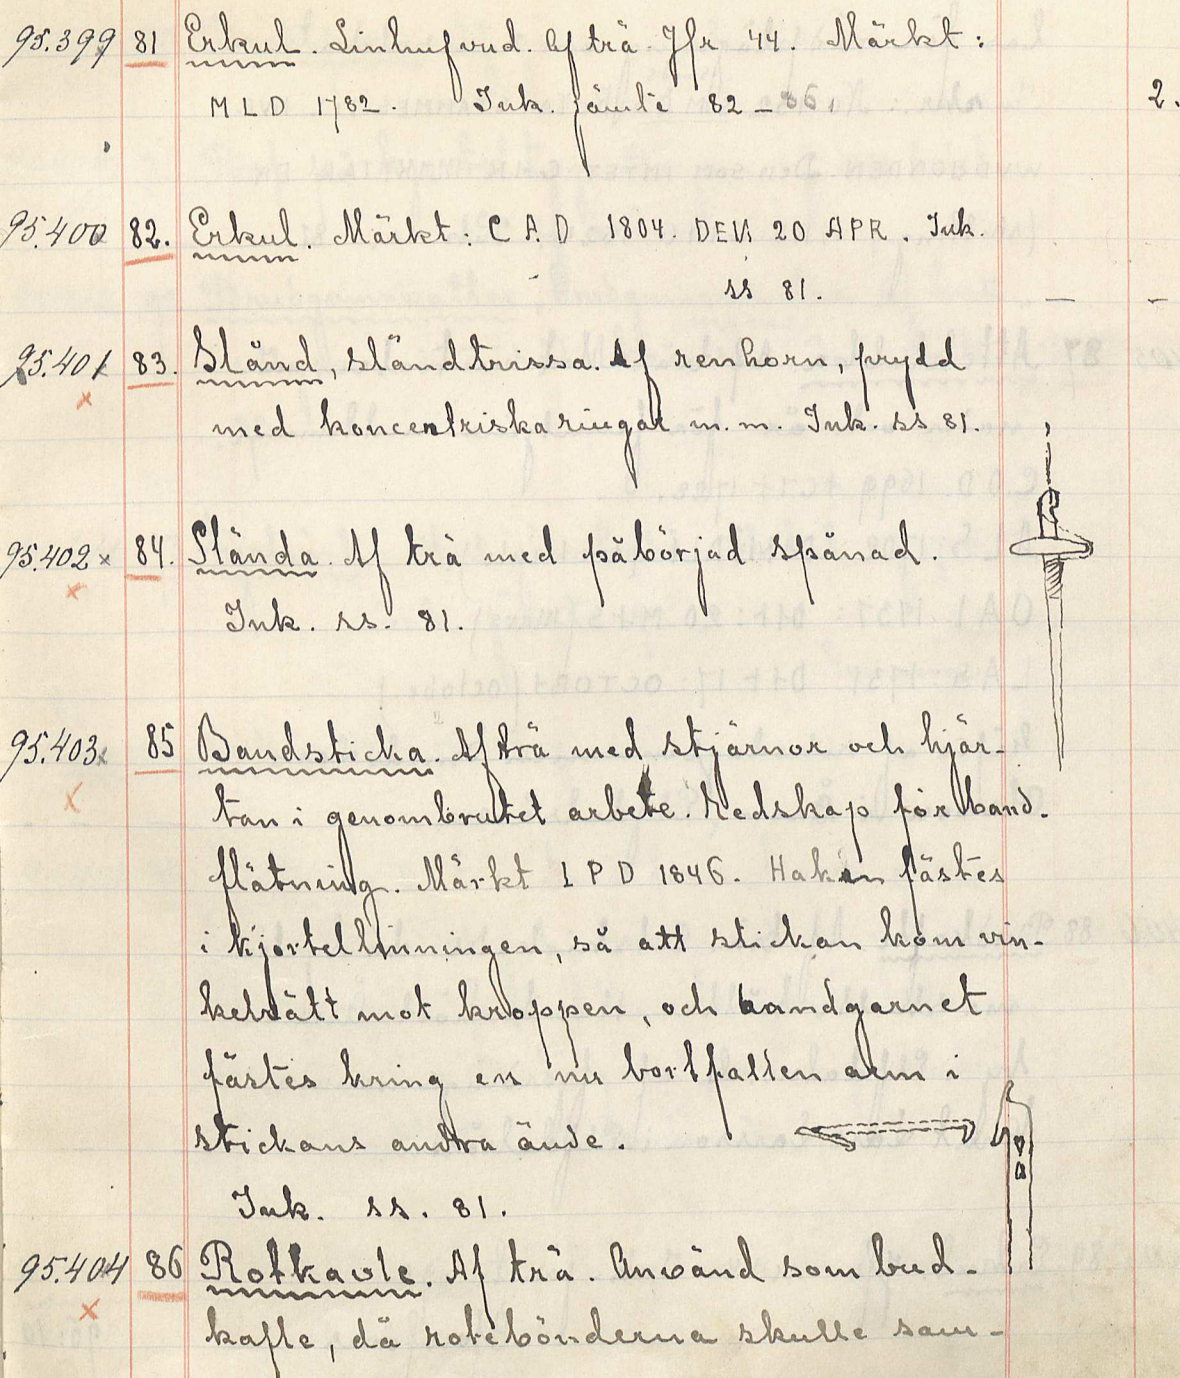 95.399 81 Erkul. Linhufvud. Af trä. Jfr 44. Märkt:
MLD 1782. Ink. jämte 82–86.
2.
95.400 82. Erkul. Märkt: C A D 1804. DEN 20 APR. Ink.
ss 81.
95.401 83. Sländ, sländtrissa. Af renhorn, prydd
x
med koncentriska ringar m.m. Ink. ss 81.
95.402 x 84. Slända. Af trä med påbörjad spånad.
x
Ink. ss. 81.
95.403 x 85 Bandsticka. Af trä med stjärnor och hjär-
x
tan i genombrutet arbete. Redskap för band-
flätning. Märkt L P D 1846. Haken fästes
i kjortellinningen, så att stickan kom vin-
kelrätt mot kroppen, och bandgarnet
fästes kring en nu bortfallen arm i
stickans andra ände.
Ink. ss. 81.
95.404 86 Rotkavle. Af trä. Använd som bud-
x
kafle, då rotebönderna skulle sam-